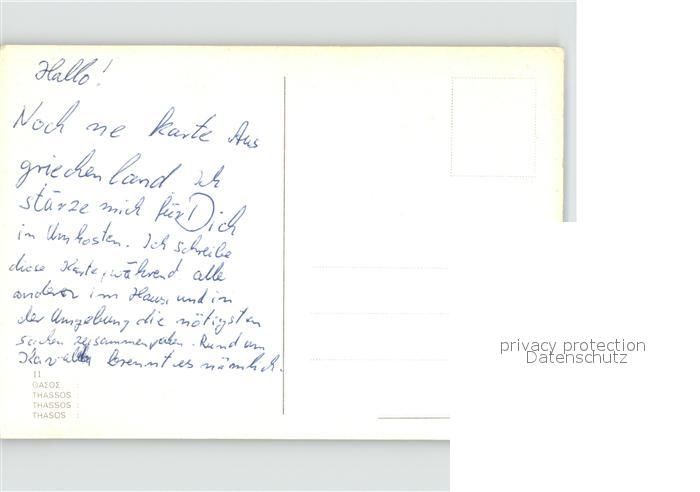 Hallo!
Noch ne Karte Aus
griechenland ich
stürze mich für Dich
in Unkosten. Ich schreibe
diese Karte, während alle
anderen im Haus und in
der Umgebung die nötigsten
sachen zusammenpacken. Rund um
Kavalla brennt es nämlich.
11
ΘΑΣΟΣ :
THASSOS :
THASSOS :
THASOS :
privacy protection
Datenschutz